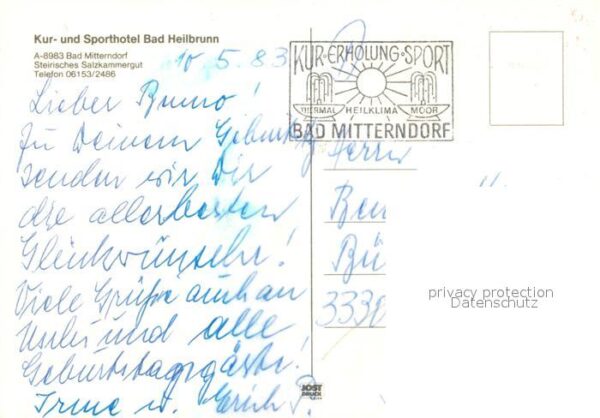 Kur- und Sporthotel Bad Heilbrunn
A-8983 Bad Mitterndorf
Steirisches Salzkammergut
Telefon 06153/2486
10.5.83
Lieber Bruno!
Zu Deinem Geburtstag
senden wir Dir
die allerbesten
Glückwünsche!
Viele Grüße auch an
Uschi und alle
Geburtstagsgäste!
Irme u. Erich P.
KUR·ERHOLUNG·SPORT
THERMAL HEILKLIMA MOOR
BAD MITTERNDORF
Herrn
Bü
333
privacy protection
Datenschutz
JOST
DRUCK